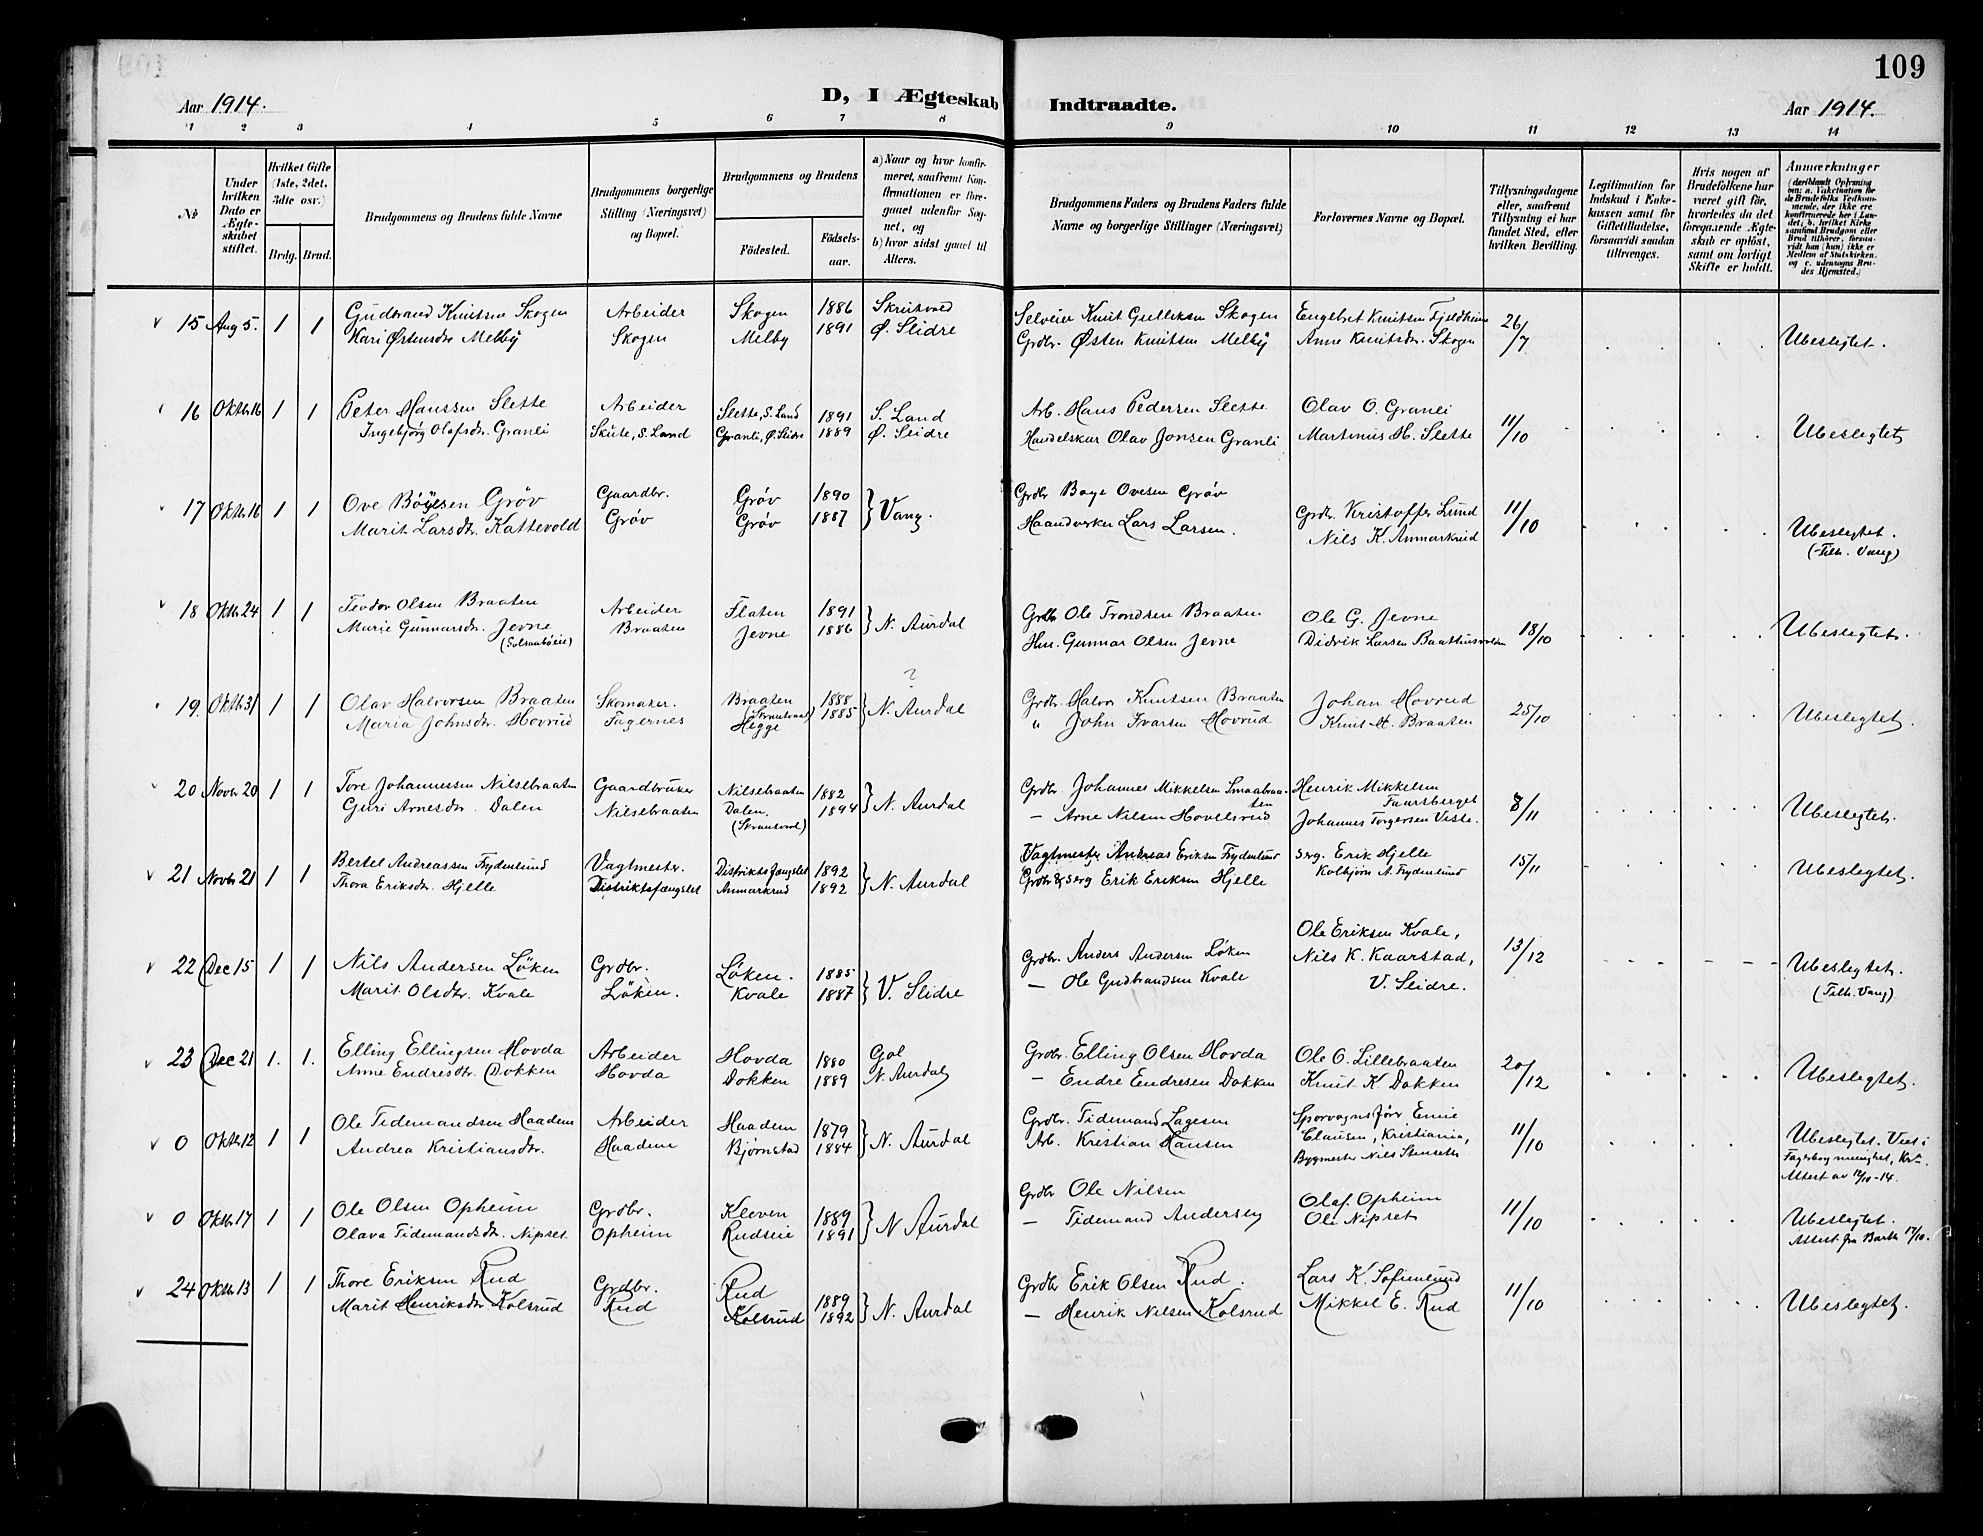 109
Aar 1914.
D, I Ægteskab Indtraadte.
Aar 1914.
1 2 3 4 5 6 7 8 9 10 11 12 13 14
№
Under hvilken Dato er Ægteskabet stiftet.
Hvilket Gifte (1ste, 2det, 3die osv.)
Brdg. Brud.
Brudgommens og Brudens fulde Navne
Brudgommens borgerlige Stilling (Næringsvei) og Bopæl.
Brudgommens og Brudens
Fødested.
Fødselsaar.
a) Naar og hvor konfirmeret, saafremt Konfirmationen er foregaaet udenfor Sognet, og
b) hvor sidst gaaet til Alters.
Brudgommens Faders og Brudens Faders fulde Navne og borgerlige Stillinger (Næringsvei)
Forlovernes Navne og Bopæl.
Tillysningsdagene eller, saafremt Tillysning ei har fundet Sted, efter hvilken Bevilling.
Legitimation for Indskud i Enkekassen samt for Giftetilladelse, forsaavidt saadan tiltrænges.
Hvis nogen af Brudefolkene har været gift før, hvorledes da det foregaaende Ægteskab er opløst, samt om lovligt Skifte er holdt.
Anmærkninger
(deriblandt Oplysning om: a. Vakcination for de Brudefolks Vedkommende, der ikke ere konfirmerede her i Landet; b. hvilket Kirkesamfund Brudgom eller Brud tilhører, forsaavidt han (hun) ikke er Medlem af Statskirken, og c. udensogns Brudes Hjemsted.)
15 Aug 5. 1 1 Gudbrand Knutsen Skogen Arbeider Skogen 1886 Skrutvold Selveier Knut Gulliksen Skogen Engebret Knutsen Fjeldheim 26/7 Ubeslegtet.
Kari Østensdtr Melby Skogen Melby 1891 Ø. Slidre Grdbr. Østen Knutsen Melby Anne Knutsdtr. Skogen
16 Oktbr 16 1 1 Peter Hanssen Slette Arbeider Slette, S. Land 1891 S. Land Arb. Hans Pedersen Slette Olav O. Granli 11/10 Ubeslegtet
Ingebjørg Olafsdtr. Granli Skute, S. Land Granli, Ø. Slidre 1889 Ø. Slidre Handelskar Olav Jonsen Granli Martinus H. Slette
17 Oktbr 16 1 1 Ove Bøyesen Grøv Gaardbr. Grøv 1890 } Vang. Grdbr Boye Ovesen Grøv Grdbr. Kristoffer Lund 11/10 Ubeslegtet.
Marit Larsdtr. Kattevold Grøv Grøv 1887 Haandverker Lars Larsen. Nils K. Anmarkrud (Tilh. Vang)
18 Oktbr 24 1 1 Teodor Olsen Braaten Arbeider Flaten 1891 } N. Aurdal Grdbr Ole Trondsen Braaten Ole G. Jevne 18/10 Ubeslegtet.
Marie Gunnarsdtr. Jevne Braaten Jevne 1886 Hm. Gunnar Olsen Jevne Didrik Larsen
?
19. Oktbr 31 1 1 Olav Halvorsen Braaten Skomaker. Braaten 1888 } N. Aurdal Grdbr. Halvor Knutsen Braaten Johan Hovrud 25/10 Ubeslegtet.
Maria Johnsdtr. Hovrud Fagernes Hegge 1885 " John Ivarsen Hovrud Knut H. Braaten
20 Novbr 20 1 1 Tore Johannessen Nilsebraaten Gaardbruker Nilsebraaten 1882 } N. Aurdal Grdbr. Johannes Mikkelsen Smaabraaten Henrik Mikkelsen 8/11 Ubeslegtet.
Guri Arnesdtr. Dalen Nilsebraaten Dalen. 1894 — Arne Nilsen Hovelsrud Johannes Torgersen Viste.
21 Novbr 21 1 1 Bertel Andreassen Frydenlund Vagtmester. Distriktsfængslet 1892 } N. Aurdal Vagtmester Andreas Eriksen Frydenlund Serg. Erik Hjelle 15/11 Ubeslegtet.
Thora Eriksdtr. Hjelle Distriktsfængslet Anmarkrud 1892 Grdbr & serg Erik Eriksen Hjelle Kolbjørn A. Frydenlund
22 Dec 15 1 1 Nils Andersen Løken Grdbr. Løken. 1885 } V. Slidre Grdbr. Anders Andersen Løken Ole Eriksen Kvale, 13/12 Ubeslegtet.
Marit Olsdtr. Kvale Løken. Kvale 1887 — Ole Gudbrandsen Kvale Nils K. Kaarstad, V. Slidre. (Tilh. Vang)
23 Dec 21 1. 1. Elling Ellingsen Hovda Arbeider Hovda 1880 Gol Grdbr. Elling Olsen Hovda Ole O. Lillebraaten 20/12 Ubeslegtet.
Anne Endresdtr. Dokken Hovda Dokken 1889 N. Aurdal — Endre Endresen Dokken Knut K. Dokken
0 Oktbr 12 1 1 Ole Tidemandsen Haadem Arbeider Haadem 1879 } N. Aurdal Grdbr. Tidemand Lagesen Sporvognsfører Clausen, Kristiania, 11/10 Ubeslegtet. Viet i
Andrea Kristiansdtr. Haadem Bjørnstad 1884 Arb. Kristian Hansen Bygmester Nils Stenseth Fagerborg menighet, Kr.a. Attest av 12/10-14.
0 Oktbr 17 1 1 Ole Olsen Opheim Grdbr. Kleven 1889 } N Aurdal Grdbr Ole Nilsen Olaf. Opheim 11/10 Ubeslegtet.
Olava Tidemandsdtr. Nipset Opheim Rudseie 1891 — Tidemand Andersen Ole Nipset Attest fra 17/10.
24 Oktbr 13 1 1 Thore Eriksen Rud Grdbr. Rud 1889 } N. Aurdal Grdbr Erik Olsen Rud. Lars K. Sofienlund 11/10 Ubeslegtet.
Marit Henriksdtr Kolsrud Rud Kolsrud 1892 — Henrik Nilsen Kolsrud Mikkel E. Rud